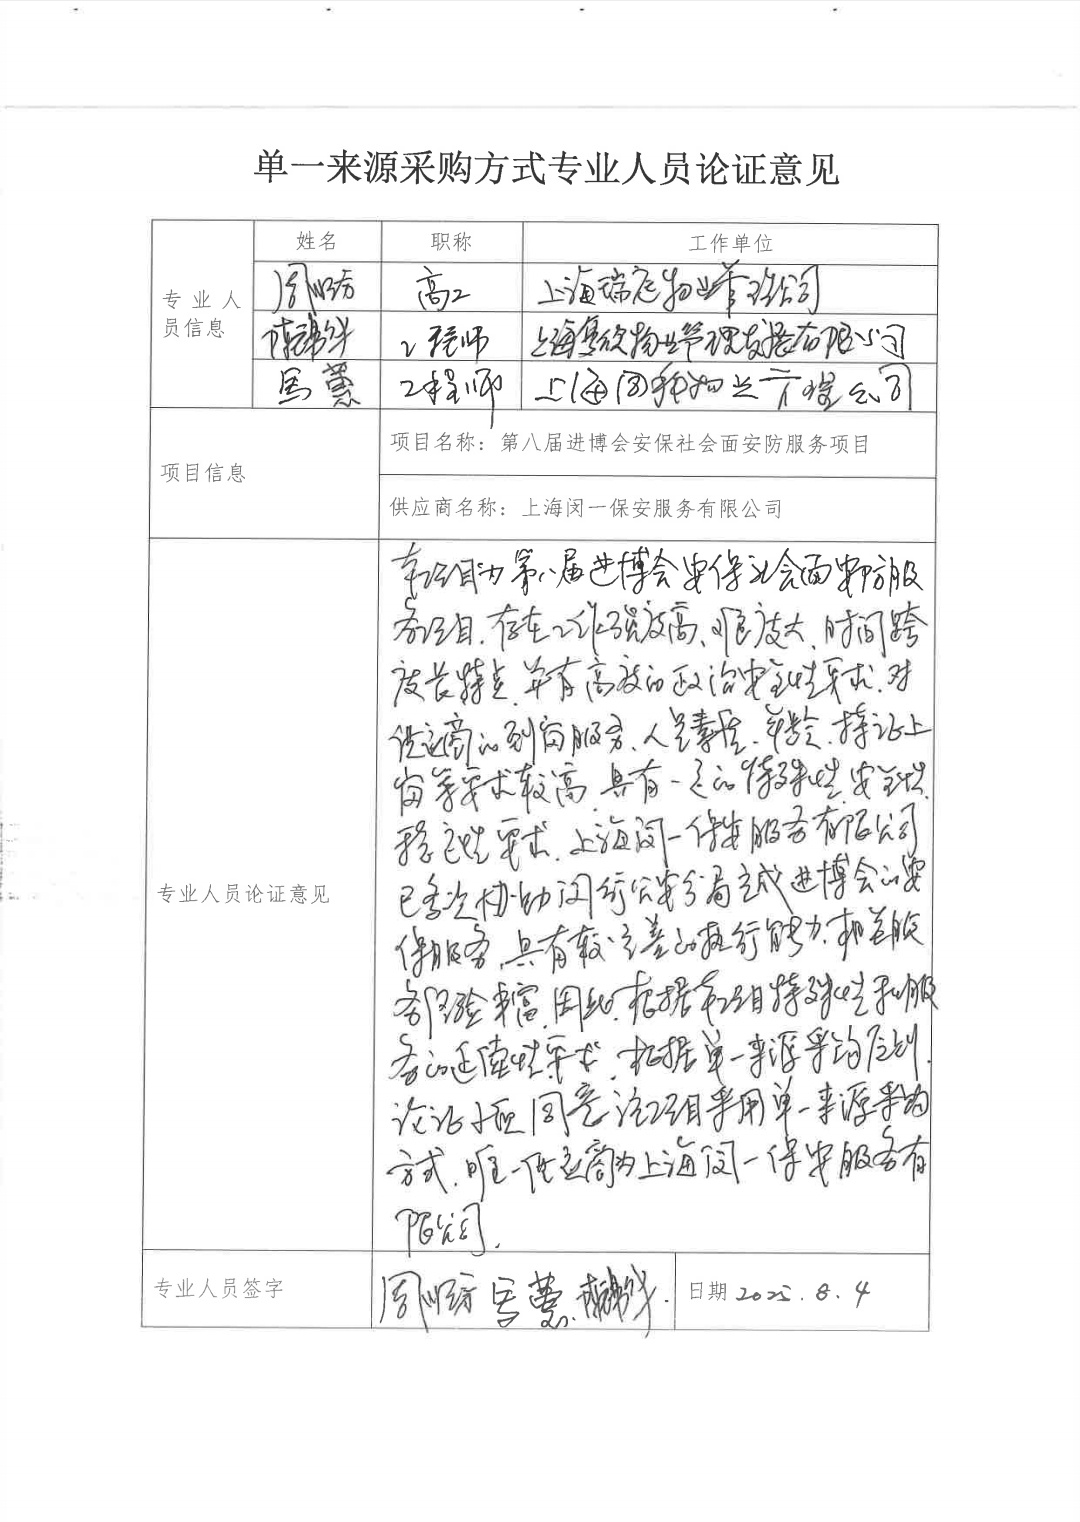 单一来源采购方式专业人员论证意见
姓名 职称 工作单位
专业人员信息
高工 上海瑞庭物业管理公司
工程师 上海 物业管理发展有限公司
马蕙 工程师 上海 物业 公司
项目信息
项目名称：第八届进博会安保社会面安防服务项目
供应商名称：上海闵一保安服务有限公司
专业人员论证意见
本项目为第八届进博会安保社会面安防服
务项目，存在工作强度高、难度大、时间跨
度长特点，并有高度的政治安全性要求，对
供应商的到岗服务、人员素质、年龄、持证上
岗等要求较高，具有一定的特殊性、安全性、
稳定性要求。上海闵一保安服务有限公司
已多次协助闵行公安分局完成进博会的安
保服务，具有较完善的执行能力，相关服
务经验丰富，因此，根据本项目特殊性和服
务的延续性要求，根据单一来源采购原则，
论证小组同意该项目采用单一来源采购
方式，唯一供应商为上海闵一保安服务有
限公司。
专业人员签字
马蕙
日期 2025.8.4